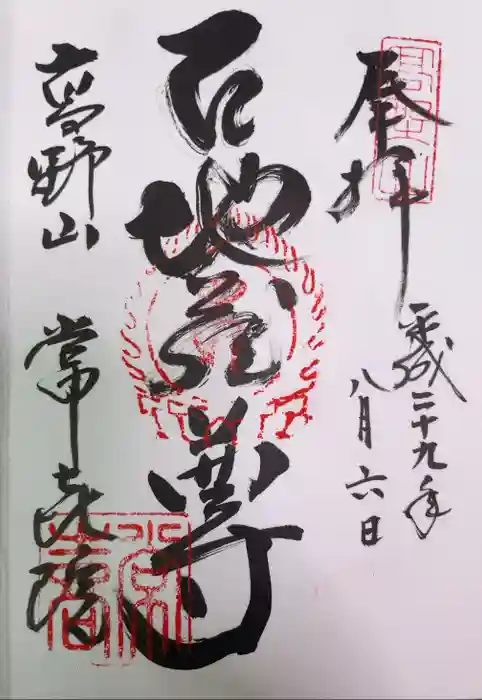 奉拝
平成二十九年
八月六日
地蔵尊
高野山
常喜院